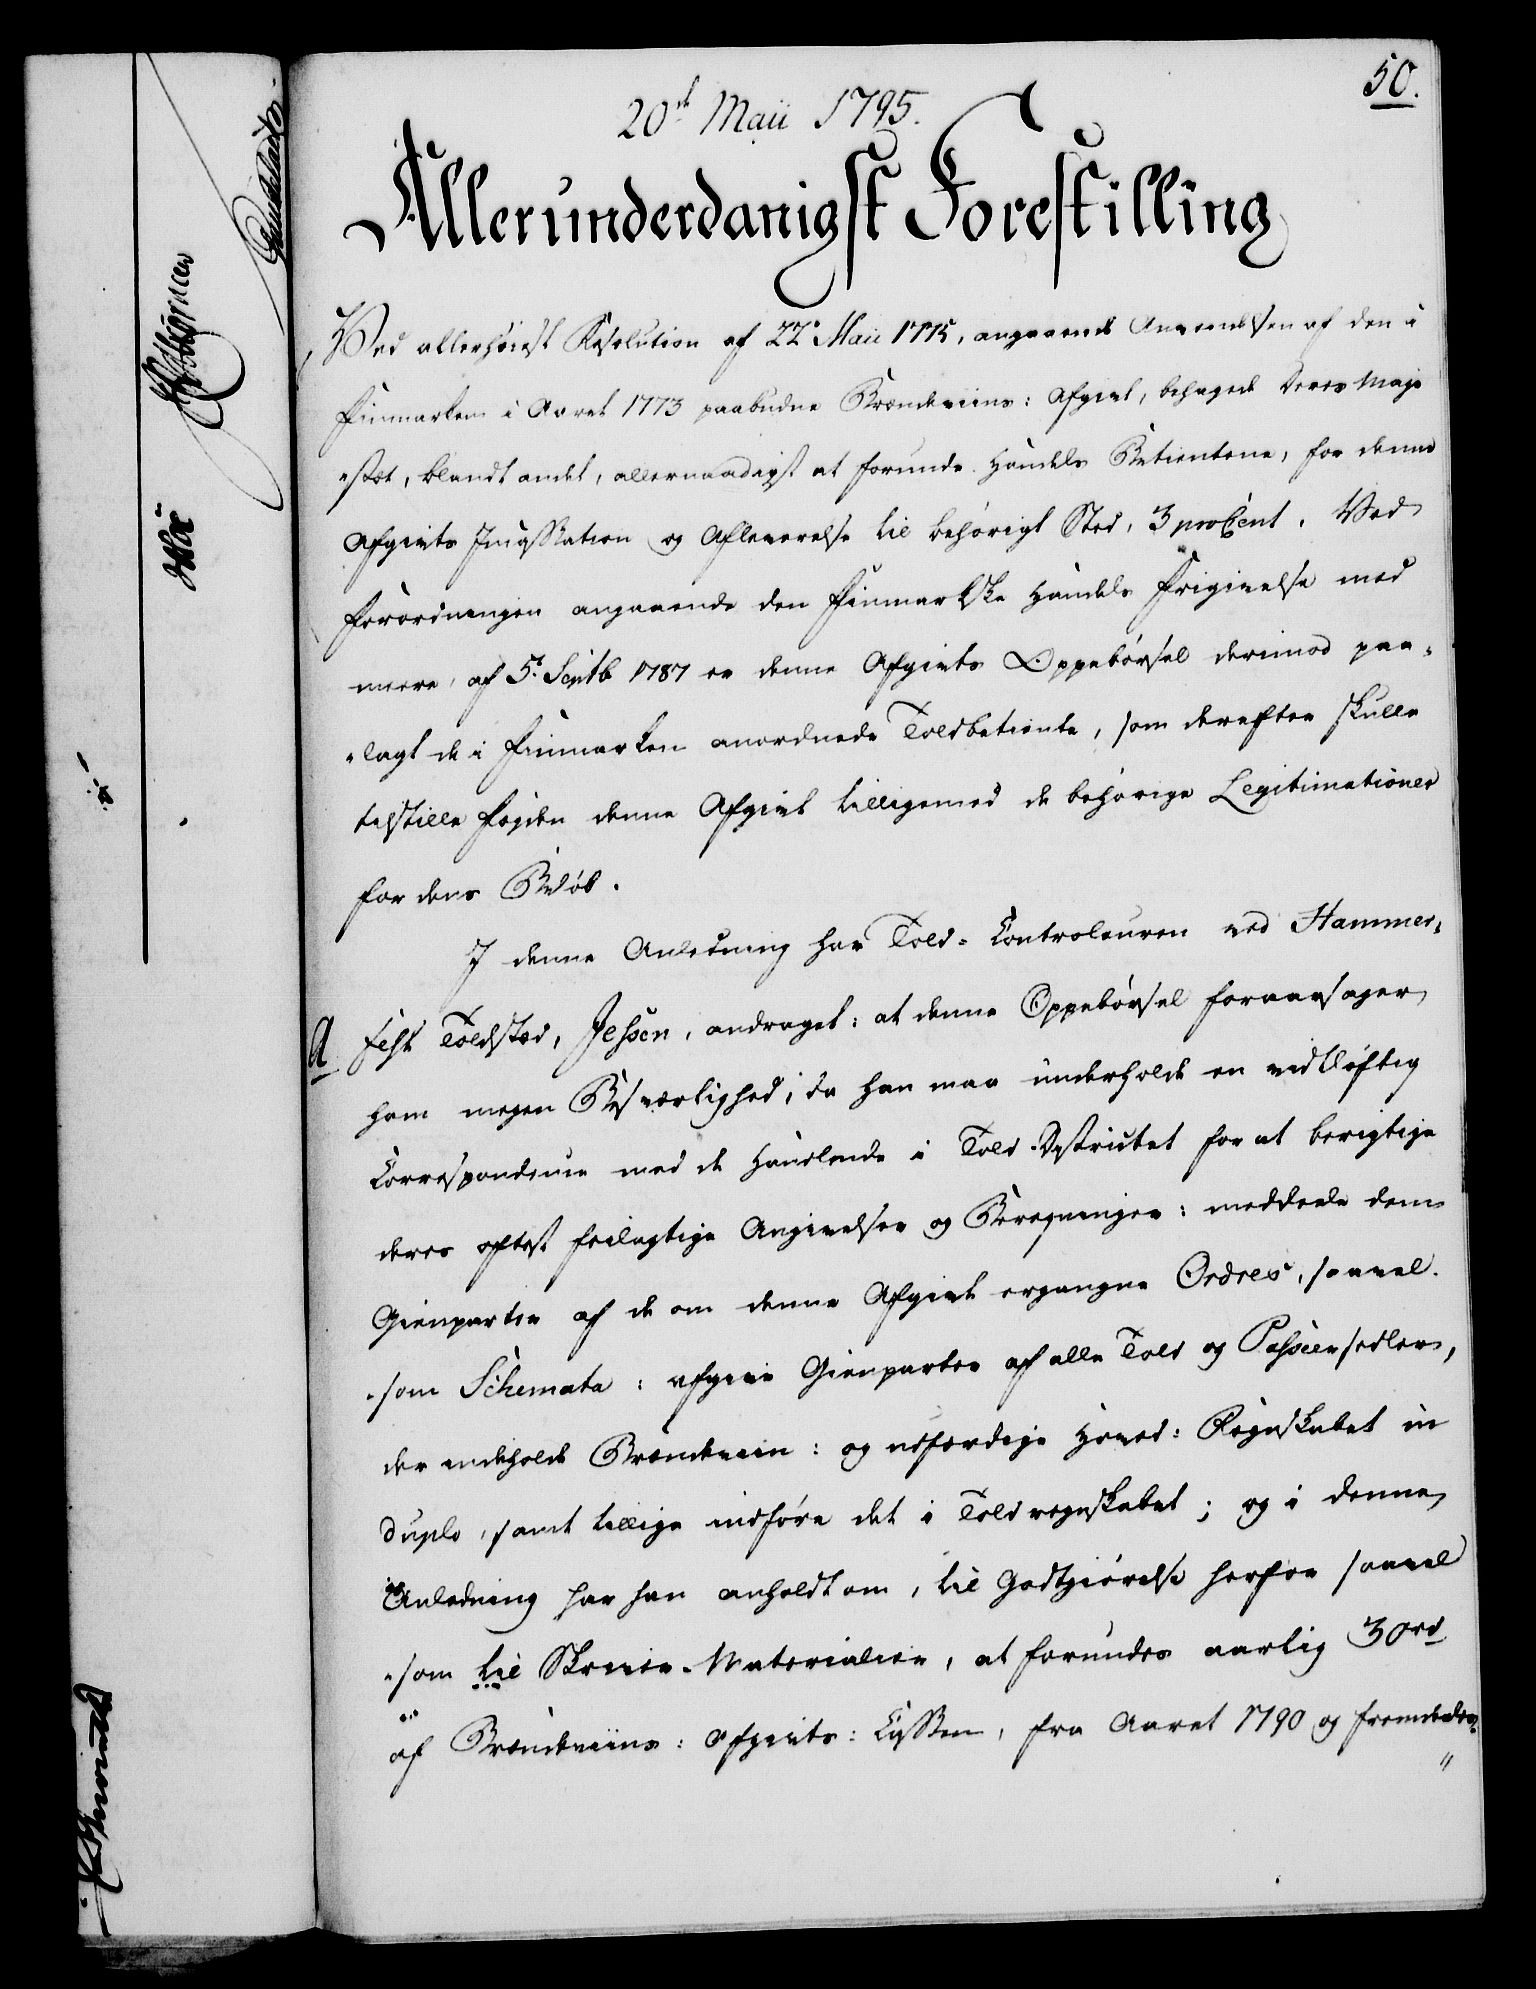 50.
20de Maii 1795.
Allerunderdanigst Forestilling
Ved allerhøiest Resolution af 22. Maii 1775, angaaende Anvendelsen af den i
Finmarken i Aaret 1773 paabudne Brændeviins: Afgivt, behagede Deres Maje
„stæt, blandt andet, allernaadigst at forunde Handels Betientene, for denne
Afgivts Incassation og Afleverelse til behørigt Sted, 3 proCent. Ved
Forordningen angaaende den Finmarkske Handels Frigivelse med
meere, af 5. Septb 1787 er denne Afgivts Oppebørsel derimod paa„
„lagt de i Finmarken anordnede Toldbetiente, som derefter skulle
tilstille Fogden denne Afgivt tilligemed de behørige Legitimationer
for dens Beløb.
I denne Anledning har Told-Controleuren ved Hammer„
A
fest Toldsted, Jessen, andraget: at denne Oppebørsel foraarsager
ham megen Besværlighed, da han maa underholde en vidtløftig
Correspondence med de Handlende i Told-Districtet for at berigtige
deres oftest feilagtige Angivelser og Beregninger: meddeele dem
Gienparter af de om denne Afgivt ergangne Ordres, saavel„
„som Schemata: afgive Gienparter af alle Told og Passeersedler,
der indeholde Brændeviin: og udfærdige Hoved: Regnskabet in
duplo, samt tillige indføre det i Toldregnskabet; og i denne
Anledning har han anholdt om, til Godtgiørelse herfor saavel
„som til Skriver-Materialier, at forundes aarlig 30 rd
af Brændeviins: Afgivts: Cassen, fra Aaret 1790 og fremdeles,